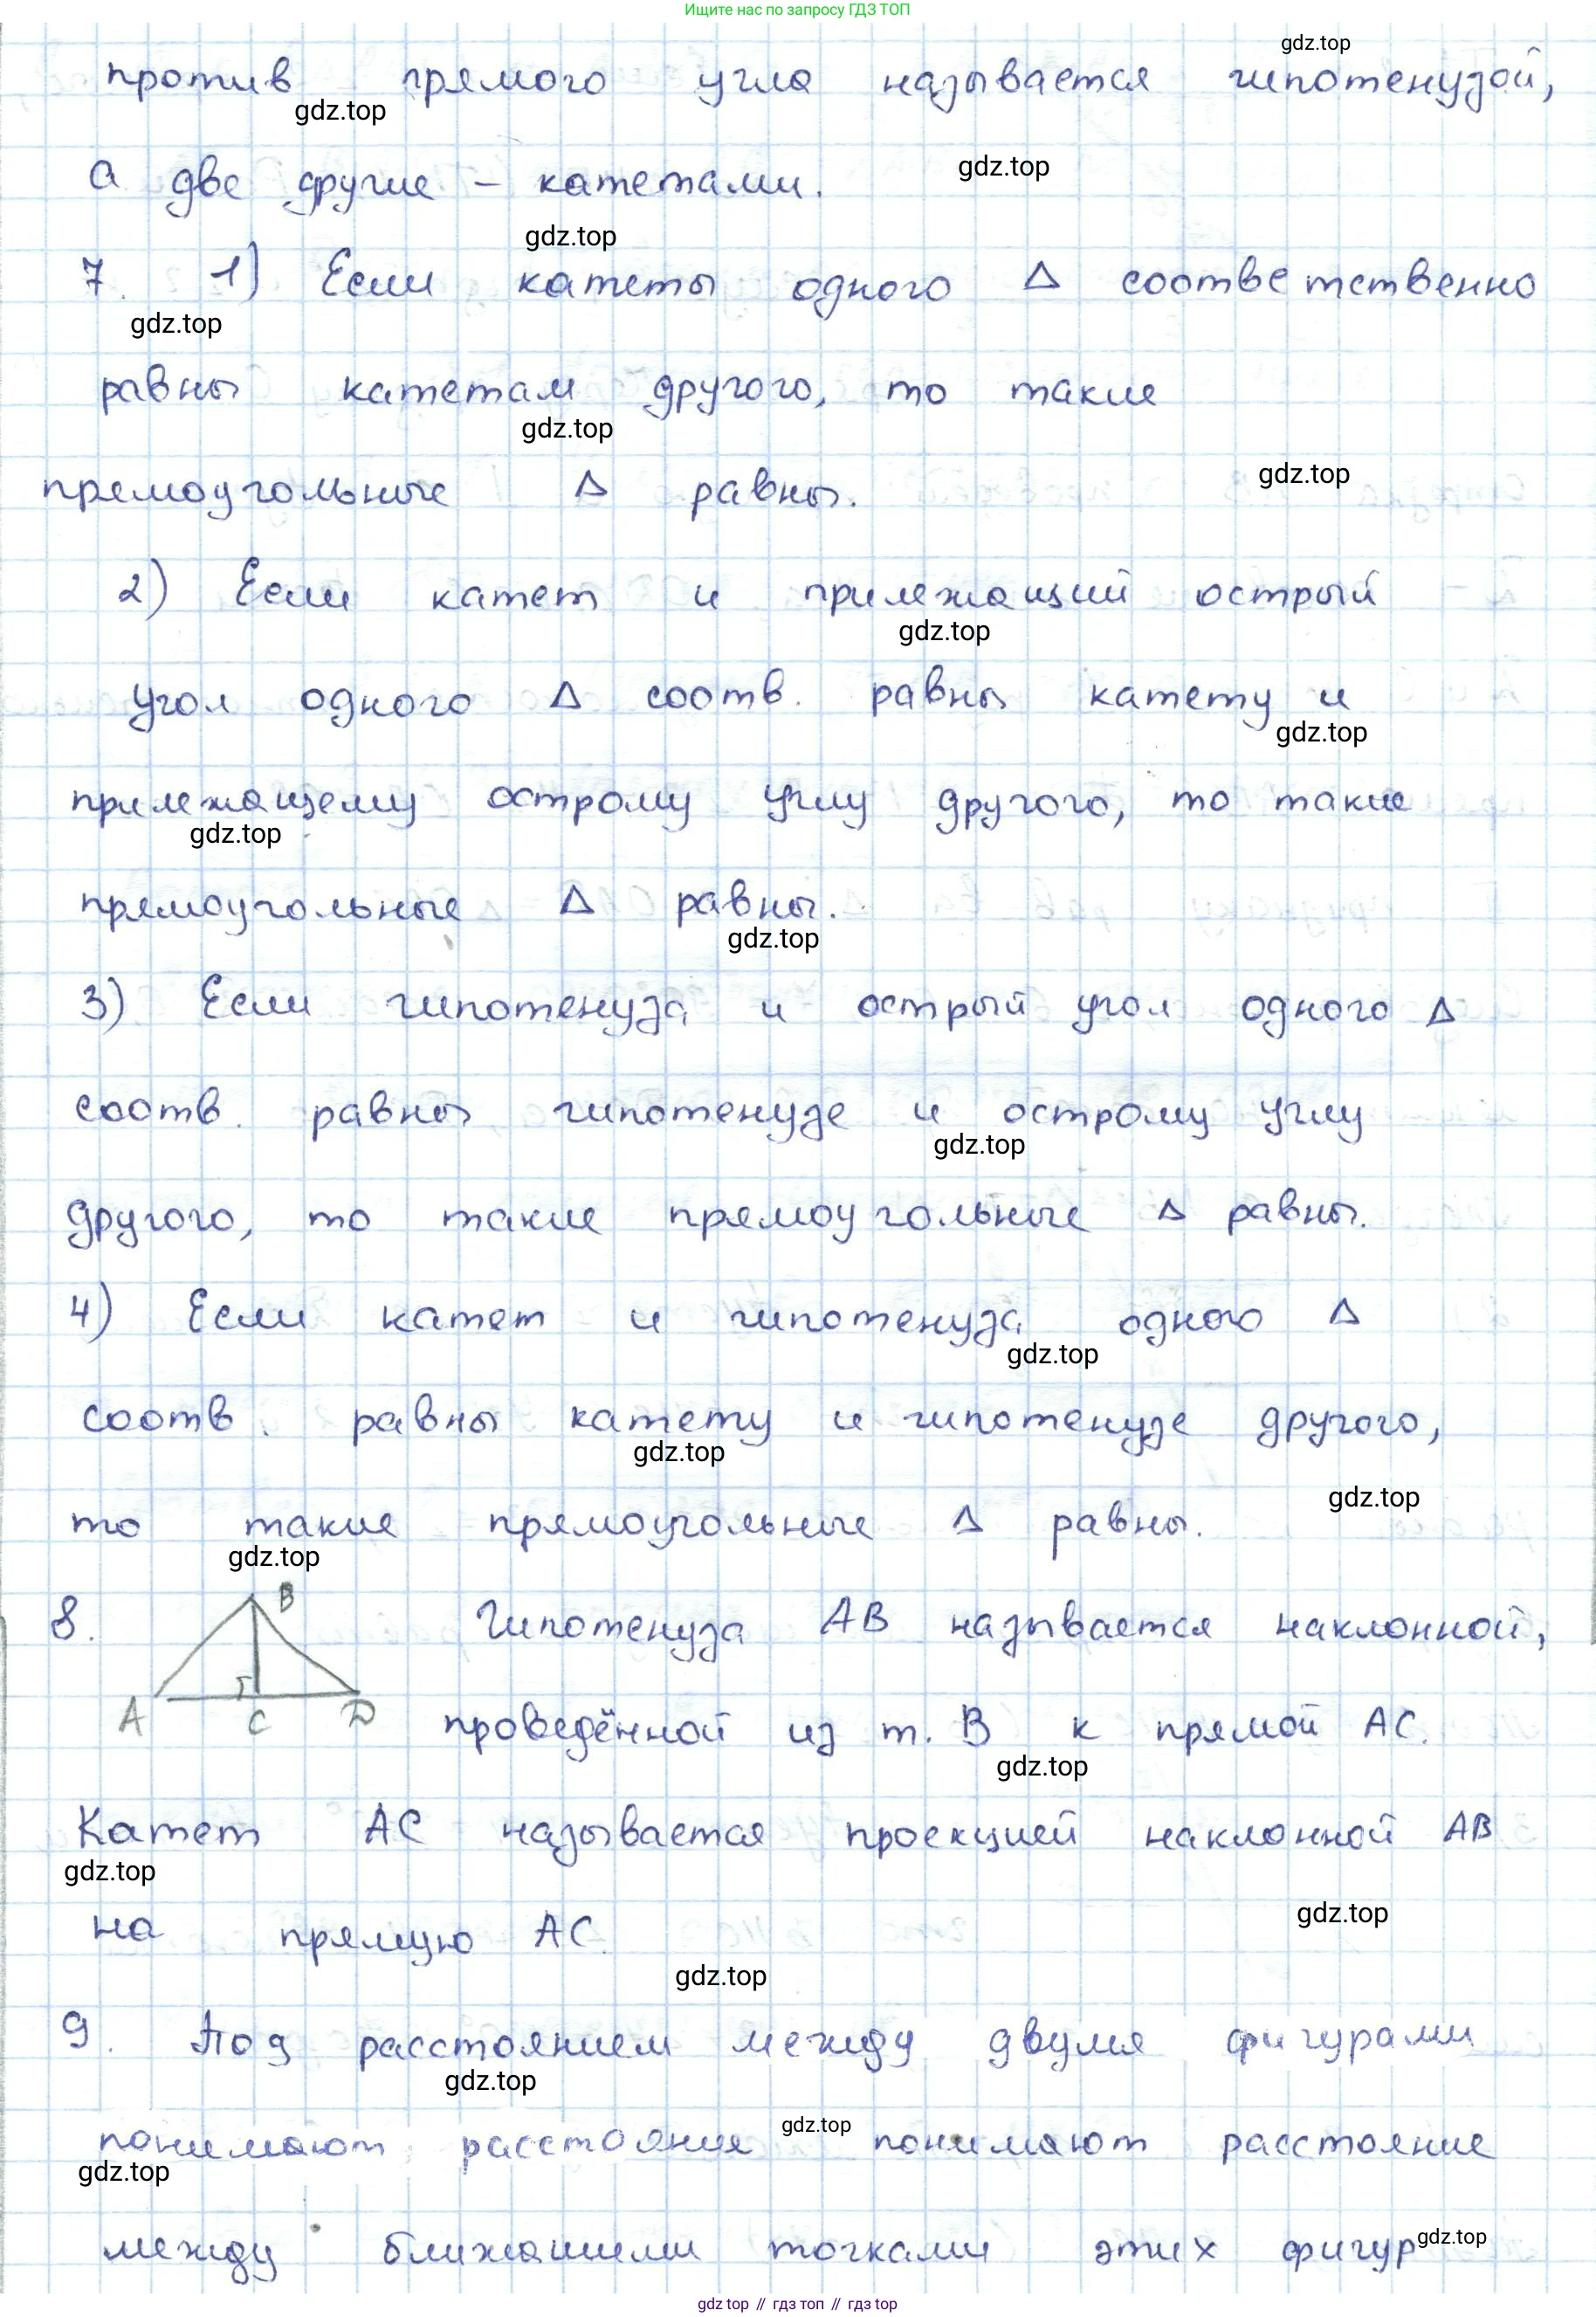 Ищите нас по запросу ГДЗ ТОП
gdz.top
против прямого угла называется гипотенузой,
gdz.top
а две другие – катетами.
gdz.top
gdz.top
7. 1) Если катеты одного Δ соответственно
gdz.top
равны катетам другого, то такие
gdz.top
прямоугольные Δ равны.
gdz.top
2) Если катет и прилежащий острый
gdz.top
угол одного Δ соотв. равны катету и
gdz.top
прилежащему острому углу другого, то такие
gdz.top
прямоугольные Δ равны.
gdz.top
3) Если гипотенуза и острый угол одного Δ
соотв. равны гипотенузе и острому углу
gdz.top
другого, то такие прямоугольные Δ равны.
4) Если катет и гипотенуза одного Δ
gdz.top
соотв. равны катету и гипотенузе другого,
gdz.top
gdz.top
то такие прямоугольные Δ равны.
gdz.top
8. B Гипотенуза AB называется наклонной,
A C D проведённой из т. B к прямой AC.
gdz.top
Катет AC называется проекцией наклонной AB
gdz.top
gdz.top
на прямую AC.
gdz.top
9. Под расстоянием между двумя фигурами
gdz.top
gdz.top
понимают расстояние понимают расстояние
gdz.top
между ближашими точками этих фигур
gdz.top
gdz.top // гдз топ // гдз.top